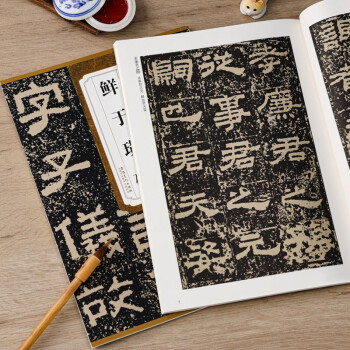 孝廉君之孫
從事君之元
嗣也君天姿
鲜于璜
字子儀